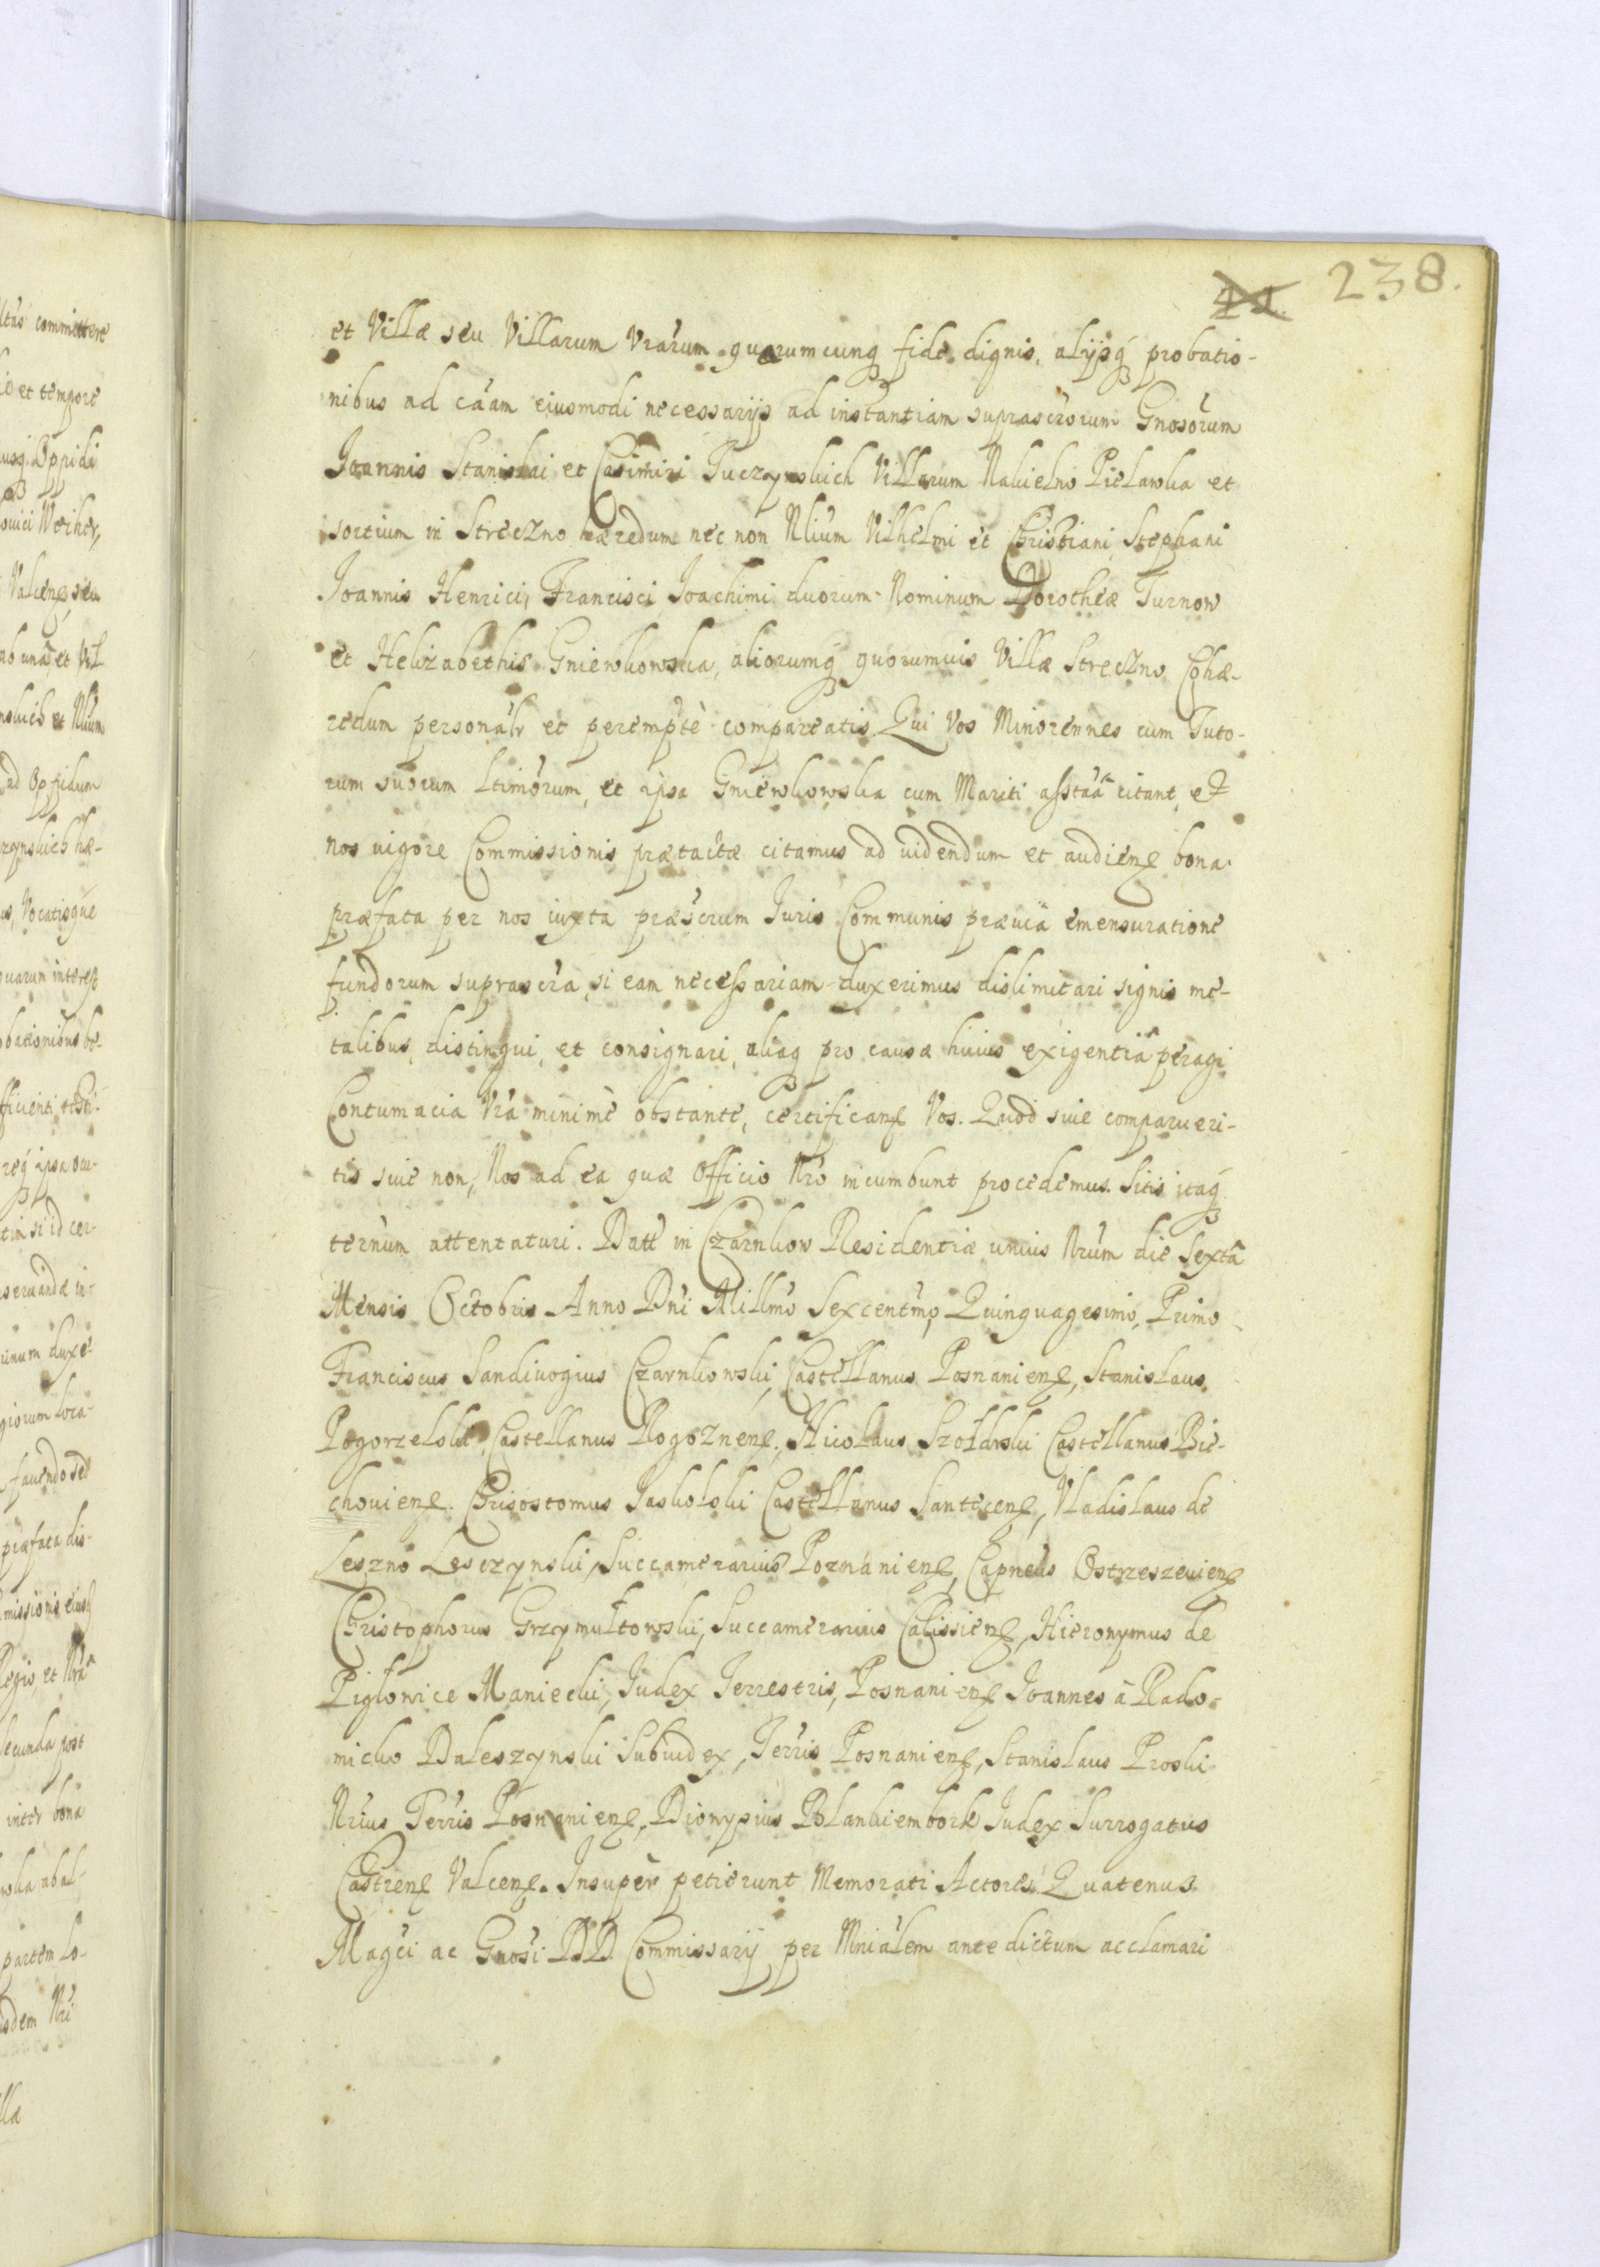 238.
et Villæ seu Villarum Vrarum quarumcunq fide dignis, alijsq probatio-
nibus ad cãam eiusmodi necessarijs ad instantiam suprascrorum Gnosorum
Ioannis Stanislai et Casimiri Tuczynskich Villarum Nakielno Pielawka et
sortium in Streczno hæredum nec non Nlium Vilhelmi et Christiani Stephani
Ioannis Henrici, Francisci Ioachimi duorum Nominum Dorotheæ Turnow
et Helizabethis Gniewkowska, aliorumq quorumuis Villæ Streczno Cohæ-
redum personalr et perempte compareatis Qui Vos Minorennes cum Tuto-
rum suorum Ltimorum, et ipsa Gniewkowska cum Mariti asstãa citant, et
nos uigore Commissionis prætactæ citamus ad uidendum et audien bona
præfata per nos iuxta præscrum Iuris Communis præuia emensuratione
fundorum suprascra, si eam necessariam duxerimus dislimitari signis me-
talibus, distingui, et consignari, aliaq pro causæ huius exigentia peragi
Contumacia Vra minime obstante, certifican Vos. Quod siue comparueri-
tis siue non, Nos ad ea quæ Officio Nro incumbunt procedemus. Sitis itaq
ternum attentaturi. Datt in Czarnkow Residentiæ unius Nrum die Sexta
Mensis Octobris Anno Dni Millmo Sexcentmo, Quinquagesimo, Primo
Franciscus Sandiuogius Czarnkowski, Castellanus Posnanien, Stanislaus
Pogorzelski Castellanus Rogoznen, Nicolaus Szołdrski Castellanus Bie-
chouien. Chrisostomus Iaskolski Castellanus Santecen, Vladislaus de
Leszno Lesczynski, Succamerarius Poznanien, Capneus Ostrzeszeuien
Christophorus Grzymułtowski, Succamerarius Calissien, Hieronymus de
Piglowice Maniecki, Iudex Terrestris, Posnanien Ioannes à Rado-
micko Daleszynski Subiudex, Terris Posnanien, Stanislaus Proski
Nrius Terris Posnanien, Dionysius Blankiembork Iudex Surrogatus
Castren Valcen. Insuper petierunt Memorati Actores Quatenus
Magci ac Gnosi DD Commissarij per Mnialem antedictum acclamari